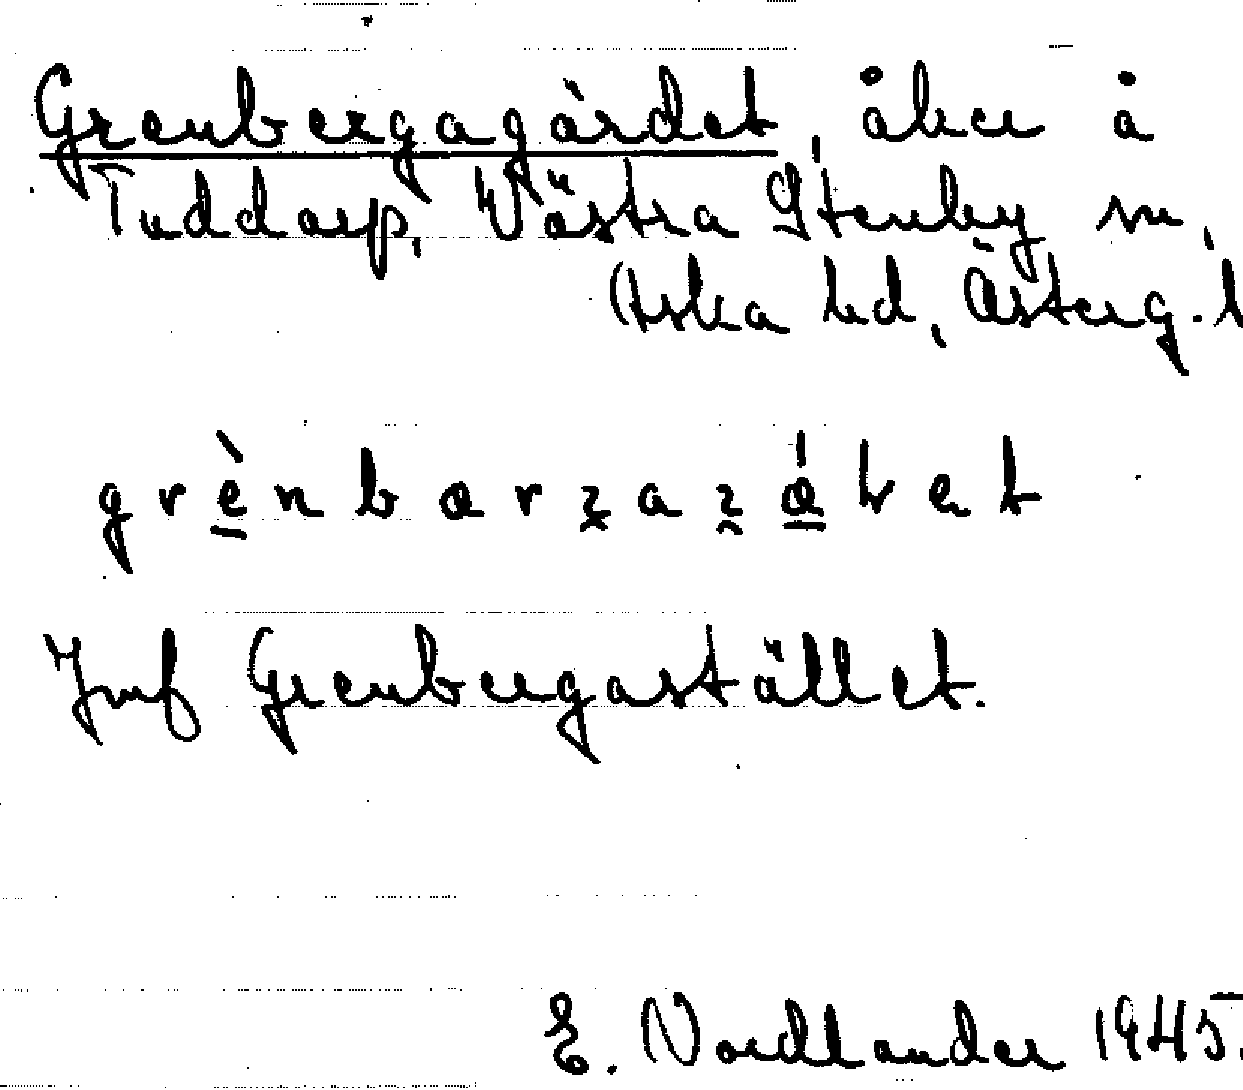 Grenbergagärdet, åker å
Tuddarp, Västra Stenby sn,
Aska hd, Österg. l
Jmf Grenbergastället.
E. Nordlander 1945.